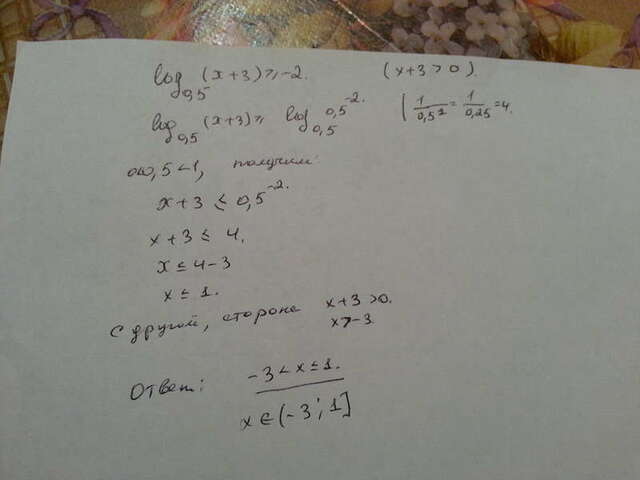 log₀,₅ (x+3) ⩾ -2. (x+3 > 0).
log₀,₅ (x+3) ⩾ log₀,₅ 0,5⁻². ( 1/0,5² = 1/0,25 = 4.
0<0,5<1, получим:
x+3 ≤ 0,5⁻².
x+3 ≤ 4.
x ≤ 4-3
x ≤ 1.
с другой, стороне x+3 > 0.
x > -3
Ответ: -3 < x ≤ 1.
x ∈ (-3; 1]